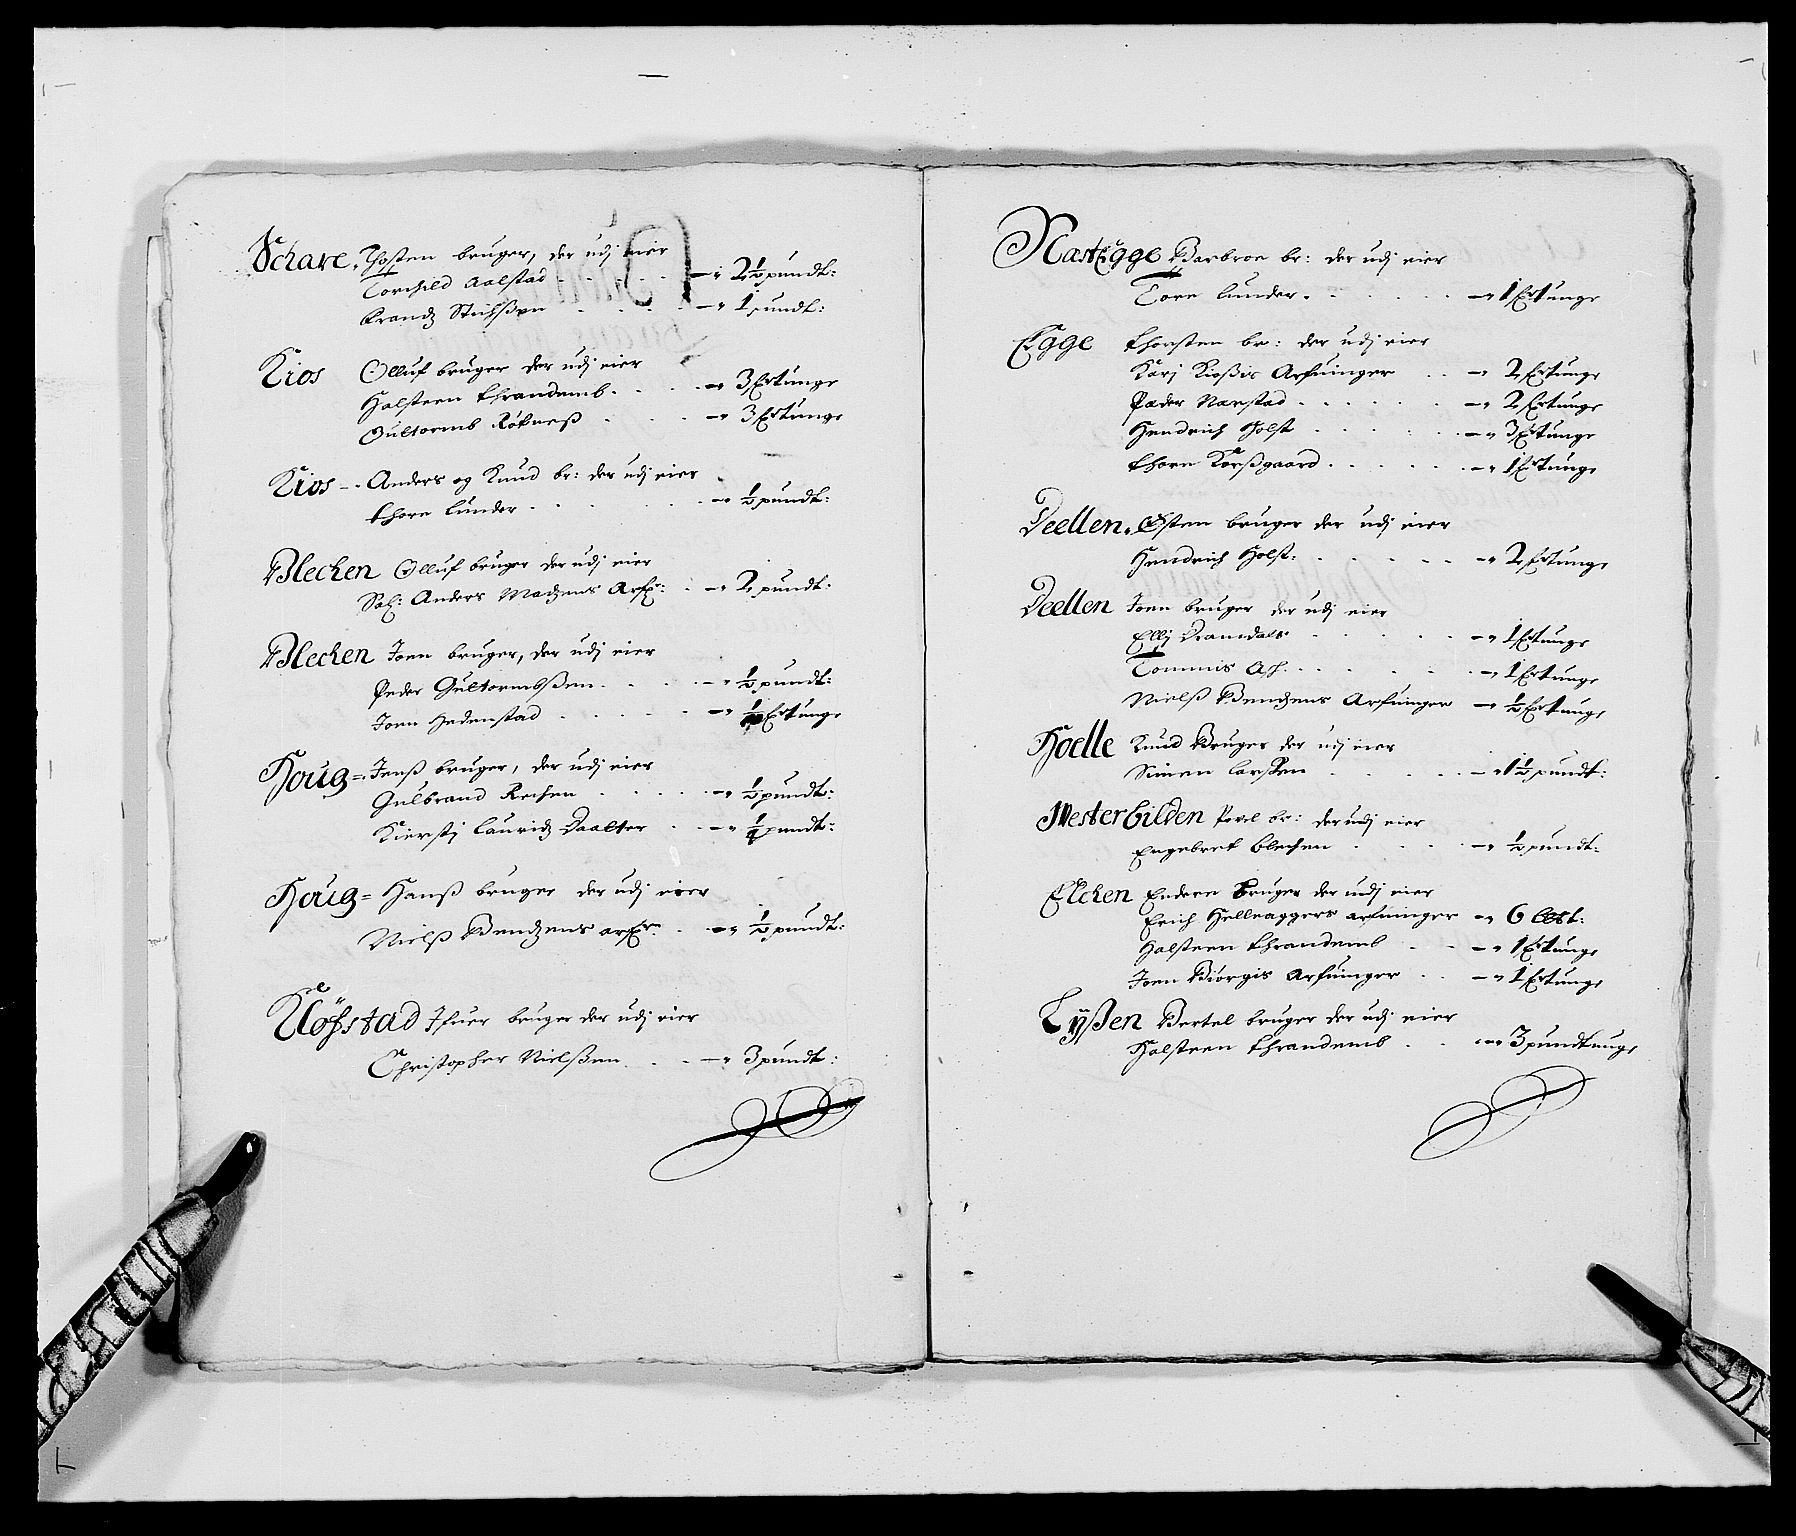 Schare. Thosten bruger, der udj eier
Torchild Aalstad — 2½ pundt:
Frandz Stichßen — 1 pundt:
Kios Olluf bruger der udj eier
Halsteen Thrandemb — 3 Ertunge
Gultormb Röfneß — 3 Ertunge
Kios - Anders og Knud br: der udj eier
Thore Lunder — ½ pundt:
Blechen Olluf bruger der udj eier
Sal: Anders Madzens Arf: — 2 pundt:
Blechen Joen bruger, der udj eier
Peder Gultormbßen — ½ pundt:
Joen Hedenstad — ½ Ertunge
Houg = Jenß bruger, der udj eier
Gulbrand Rechen — ½ pundt:
Kierstj Lauridz Daatter — ¼ pundt:
Houg = Hanß bruger der udj eier
Nielß Bendzens arf: — ½ pundt:
Klöfstad Ifuer bruger der udj eier
Christopher Nielßen — 3 pundt:
NærEgge Barbroe br: der udj eier
Tore Lunder — 1 Ertunge
Egge Thorsten br: der udj eier
Karj Kioßis Arfuinger — 2 Ertunge
Peder Narstad — 2 Ertunge
Hendrich Holst — 3 Ertunge
Thore Korßgaard — 1 Ertunge
Deellen. Østen bruger der udj eier
Hendrich Holst: — 2 Ertunge
Deellen Joen bruger der udj eier
Ellj Dramdals — 1 Ertunge
Tommis Aß — 1 Ertunge
Nielß Bendzens Arfuinger — ½ Ertunge
Hoelle Knud Bruger der udj eier
Simen Larßen — 1½ pundt:
Westerbilden Povel br: der udj eier
Engebret Blechen — ½ pundt:
Elchen Endere bruger der udj eier
Erich Hellraggers arfuinger — 6
Halsteen Thrandemb — 1 Ertunge
Joen Biörgis Arfuinger — 1 Ertunge
Lÿßen Bertel bruger der udj eier
Halsteen Thrandemb — 3 pundtunge